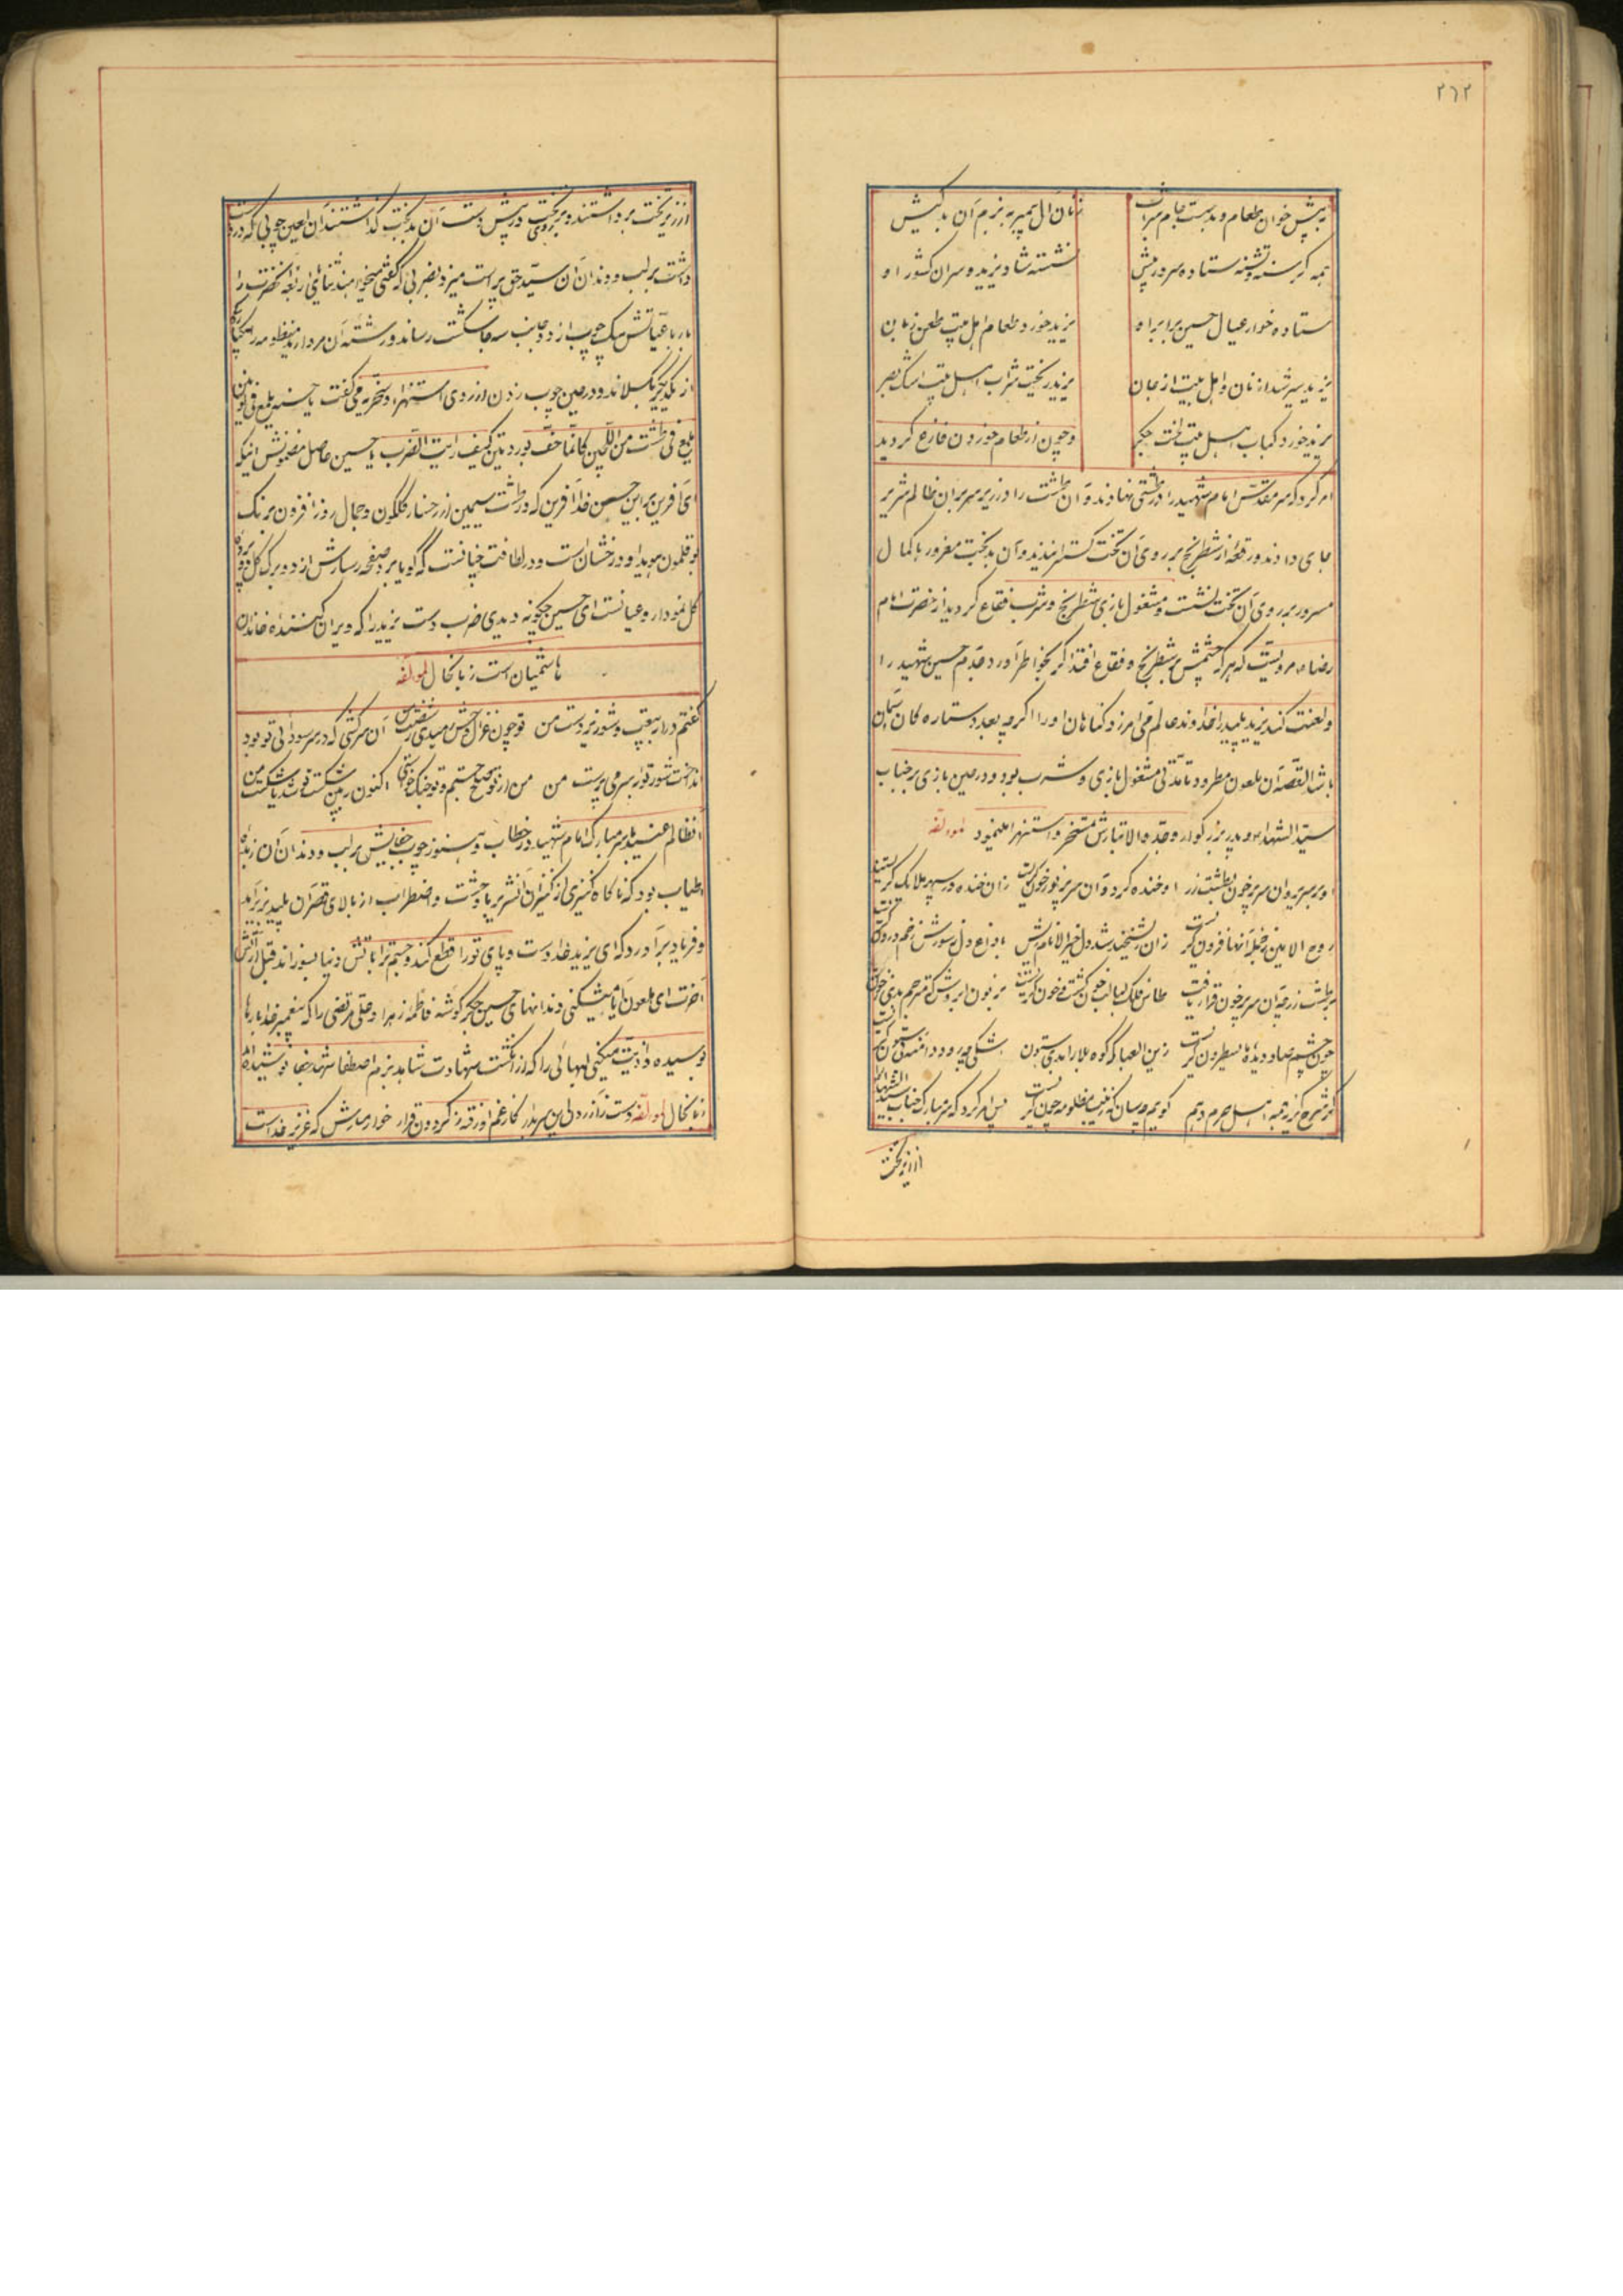 ۲۶۲
به پیش خوان طعام و بدست جام شراب زنان آل پیمبر به بزم آن بدکیش
همه گرسنه و تشنه ستاده سر در پیش نشسته شاد یزید و سران کشور او
ستاده خوار عیال حسین برابر او یزید خورد طعام اهل بیت طعن زبان
یزید سیر شد از نان و اهل بیت از جان یزید ریخت شراب اهل بیت اشک بصر
یزید خورد کباب اهل بیت لخت جگر و چون از طعام خوردن فارغ گردید
امر کرد که سر مقدس امام شهید را در طشتی نهادند و آن طشت را در زیر سریر آن ظالم شریر
جای دادند و رقعهٔ از شطرنج بر روی آن تخت گسترانیدند و آن بدبخت مغرور با کمال
سرور بر روی آن تخت نشست و مشغول بازی شطرنج و شرب فقاع گردید از حضرت امام
رضا مرویست که هر که چشمش بر شطرنج و فقاع افتد اگر بخاطر آورد جدم حسین شهید را
و لعنت کند یزید پلید را خداوند عالم می آمرزد گناهان او را اگر چه بعدد ستاره کان آسمان
باشد القصه آن ملعون مطرود تا مدتی مشغول بازی و شرب بود و در عین بازی بر جناب
سید الشهداء و پدر بزرگوار و جد والاتبارش تمسخر و استهزا مینمود لمؤلفه
او بر سریر و آن سر پر خون بطشت زر او خنده کرد و آن سر پر نور خون گریست زان خنده در سپهر ملایک گریستند
روح الامین ز جمله آنها فزون گریست زان ریشخند شد دل خیر الانام ریش
بر طشت زر چه آن سر پر خون قرار یافت طاس فلک لبالب خون گشت و خون گریست
چون چشم صاد دیدهٔ ما یسطرون گریست زین العبا که کوه بلا را بدی ستون
گر شرح گریهٔ همه اهل حرم دهم گویم چسان که زینب مظلومه چون گریست پس امر کرد که سر مبارک جناب سید الشهدا را
از زیر تخت
از زیر تخت برداشتند و بر روی تخت در پیش دست آن بدبخت گذاشتند آن لعین چوبی که در دست
داشت بر لب و دندان آن سید حق پرست میزد بضربی که گفتی میخواهند ثنایای اربعه آنحضرت را
از یکدیگر بگسلاند و در عین چوب زدن از روی استهزا و سخریه می گفت یا حسنه یلمع فی الیدین
یلمع فی طشت من اللجین کانما حف بوردتین کیف رایت الضرب یا حسین حاصل مضمونش اینکه
ای آفرین بر این حسن خدا آفرین که در طشت سیمین از رخسار گلگون و جمال روز افزون برنگ
بوقلمون هویدا و درخشان است و در لطافت چنانست که گویا بر صفحه رسارش از دو برگ گل پرده
گل نمودار و عیانست ای حسین چگونه دیدی ضرب دست یزید را که ویران کننده خاندان
هاشمیان است زبانحال لمؤلفه
گفتم درار بیعت و شو زیردست من تو چون غزال وحش رمیدی ز شصت من آن سرکشی که در سر سودائی تو بود
انداخت شور تو بسر می پرست من من از تو صلح جستم و تو جنگ خواستی اکنون ببین شکست تو شد یا شکست من
انظالم عنید با سر مبارک امام شهید در خطاب و هنوز چوب جفایش بر لب و دندان آن زبدهٔ
اطیاب بود که ناگاه کنیزی از کنیزان آنشریر با وحشت و اضطراب از بالای قصر آن پلید بزیر آمد
و فریاد برآورد که ای یزید خدا دست و پای تو را قطع کند و جسم ترا باتش دنیا بسوزاند قبل از آتش
آخرت ای ملعون آیا میشکنی دندانهای حسین جگر گوشه فاطمه زهرا و علی مرتضی را که پیغمبر خدا بارها
بوسیده و اذیت میکنی لبهائی را که از انگشت شهادت شاهد بزم اصطفا شهد شفا نوشیده
زبانحال لمؤلفه دست از آزردن این سر بدار کار غم او رفته ز گردون قرار خوار مدارش که عزیز خداست